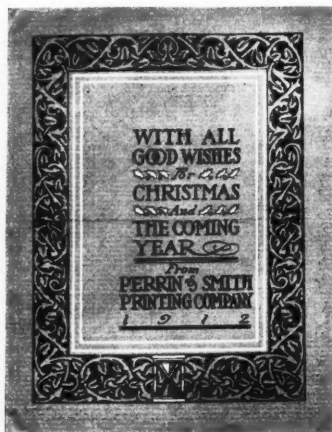 WITH ALL
GOOD WISHES
For
CHRISTMAS
And
THE COMING
YEAR
From
PERRIN & SMITH
PRINTING COMPANY
1912